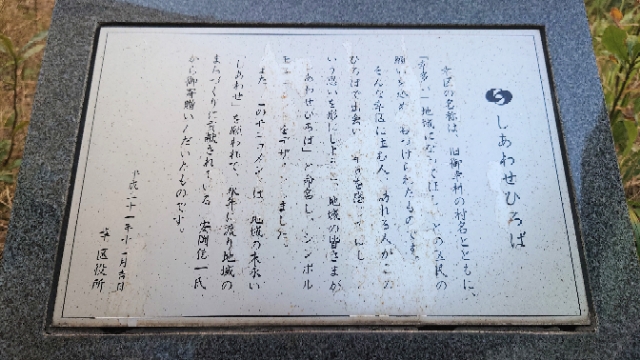 しあわせひろば
幸区の名称は、旧御幸村の村名とともに、
「幸多い」地域になってほしいとの区民の
願いを込め、名づけられたものです。
そんな幸区に住む人、訪れる人がこの
ひろばで出会い、幸せを感じてほしいと
いう思いを形にしようと、地域の皆さまが
「しあわせひろば」と命名し、シンボル
しました。
また、このモニュメントは、地域の末永い
「しあわせ」を願われて、永年に渡り地域の
まちづくりに貢献されている
氏
から御寄贈いただいたものです。
平成二十一年十一月吉日
幸区役所